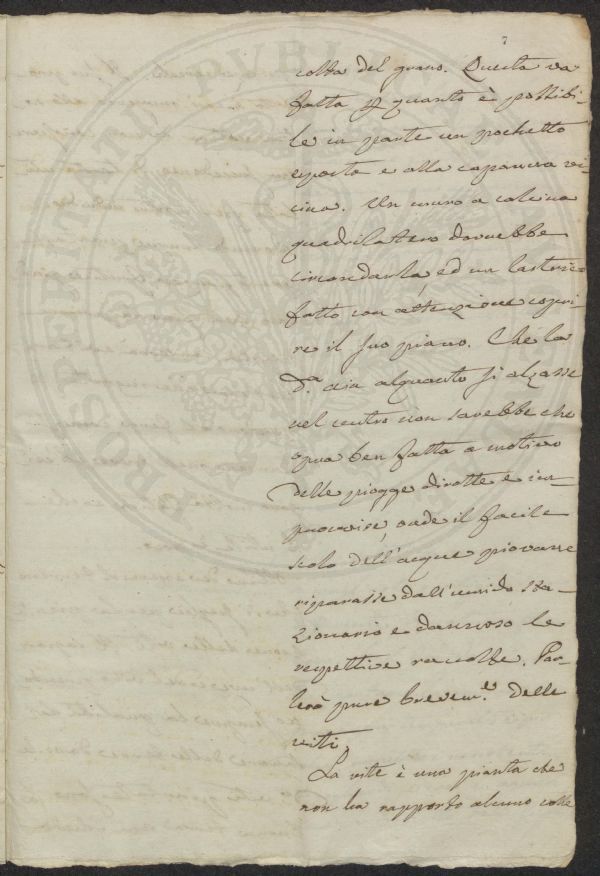 7
colta del grano. Questa va
fatta p quanto è possibi-
le in parte un pochetto
esposta e alla capanna vi-
cina. Un muro a calcina
quadrilatero dovrebbe
circondarla, ed un lastrico
fatto con attenzione copri-
re il suo piano. Che la
d.ª aia alquanto si alzasse
nel centro non sarebbe che
opra ben fatta a motivo
delle piogge dirotte e im-
provvise, onde il facile
scolo dell'acque piovane
riparasse dall'umido sta-
zionario e dannoso le
respettive raccolte. Par-
lerò pure brevem.e delle
viti.
La vite è una pianta che
non ha rapporto alcuno colle
PROSPERITATI PUBLICAE